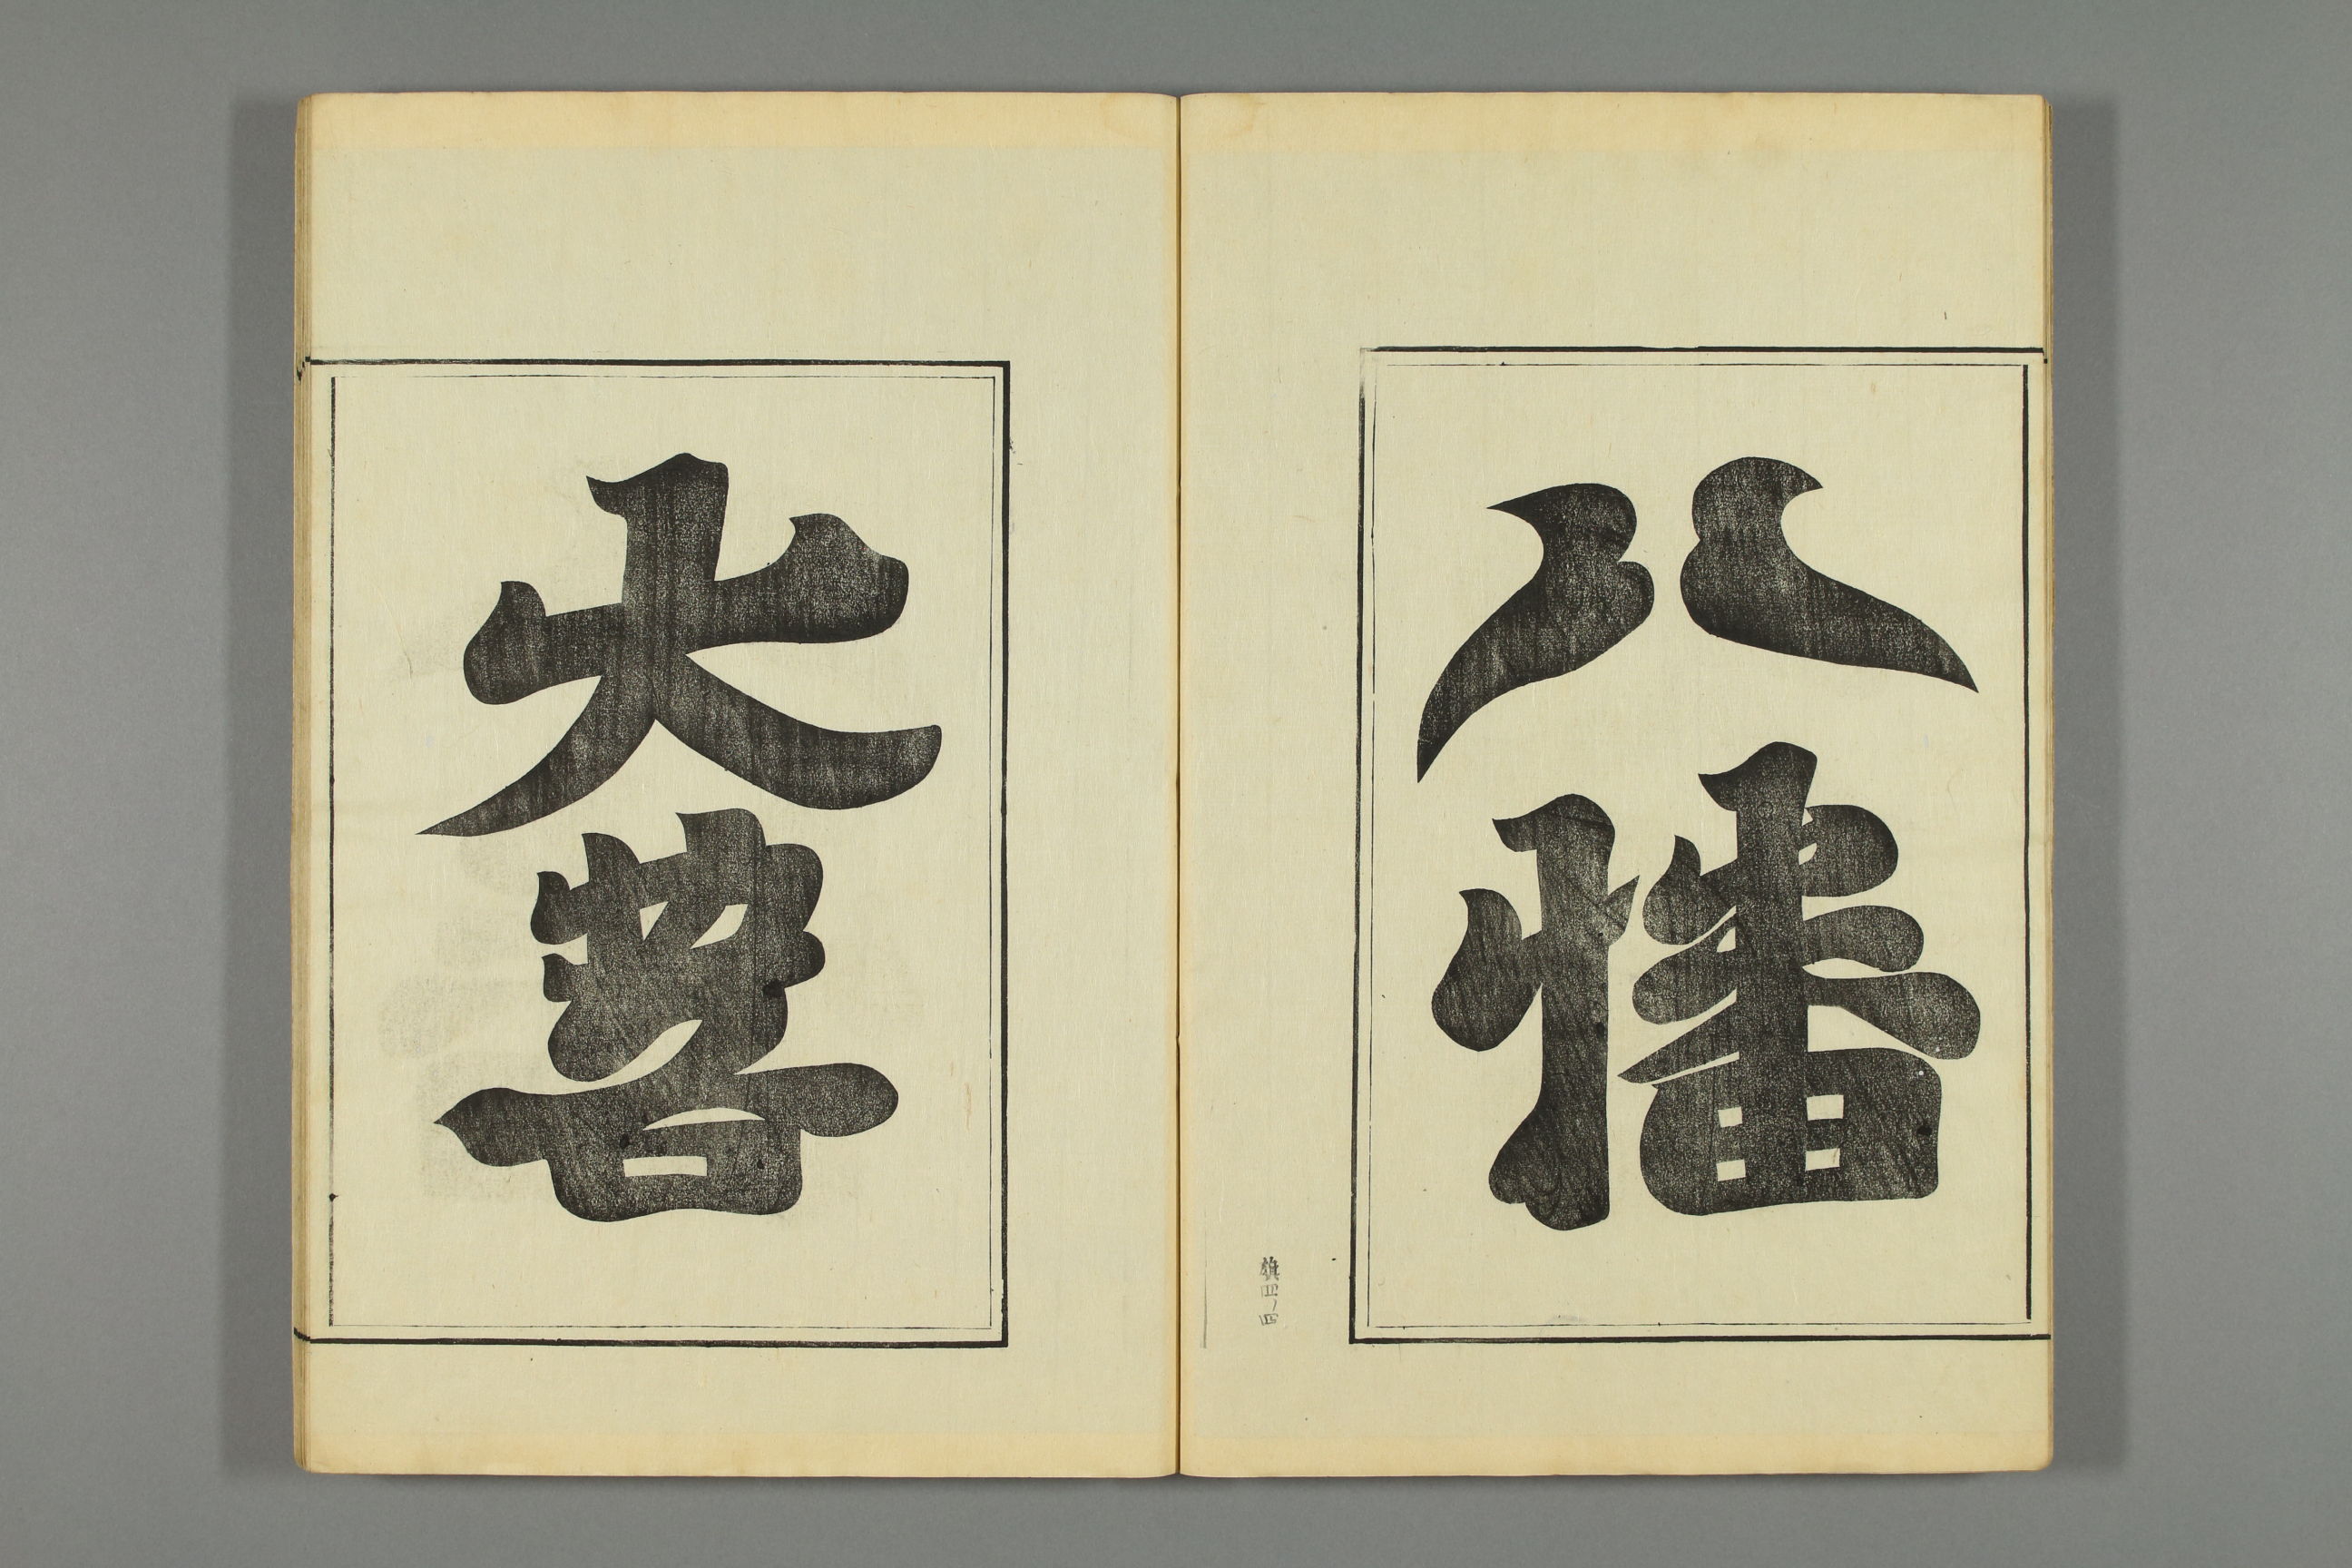 八幡
旗四ノ四
大菩